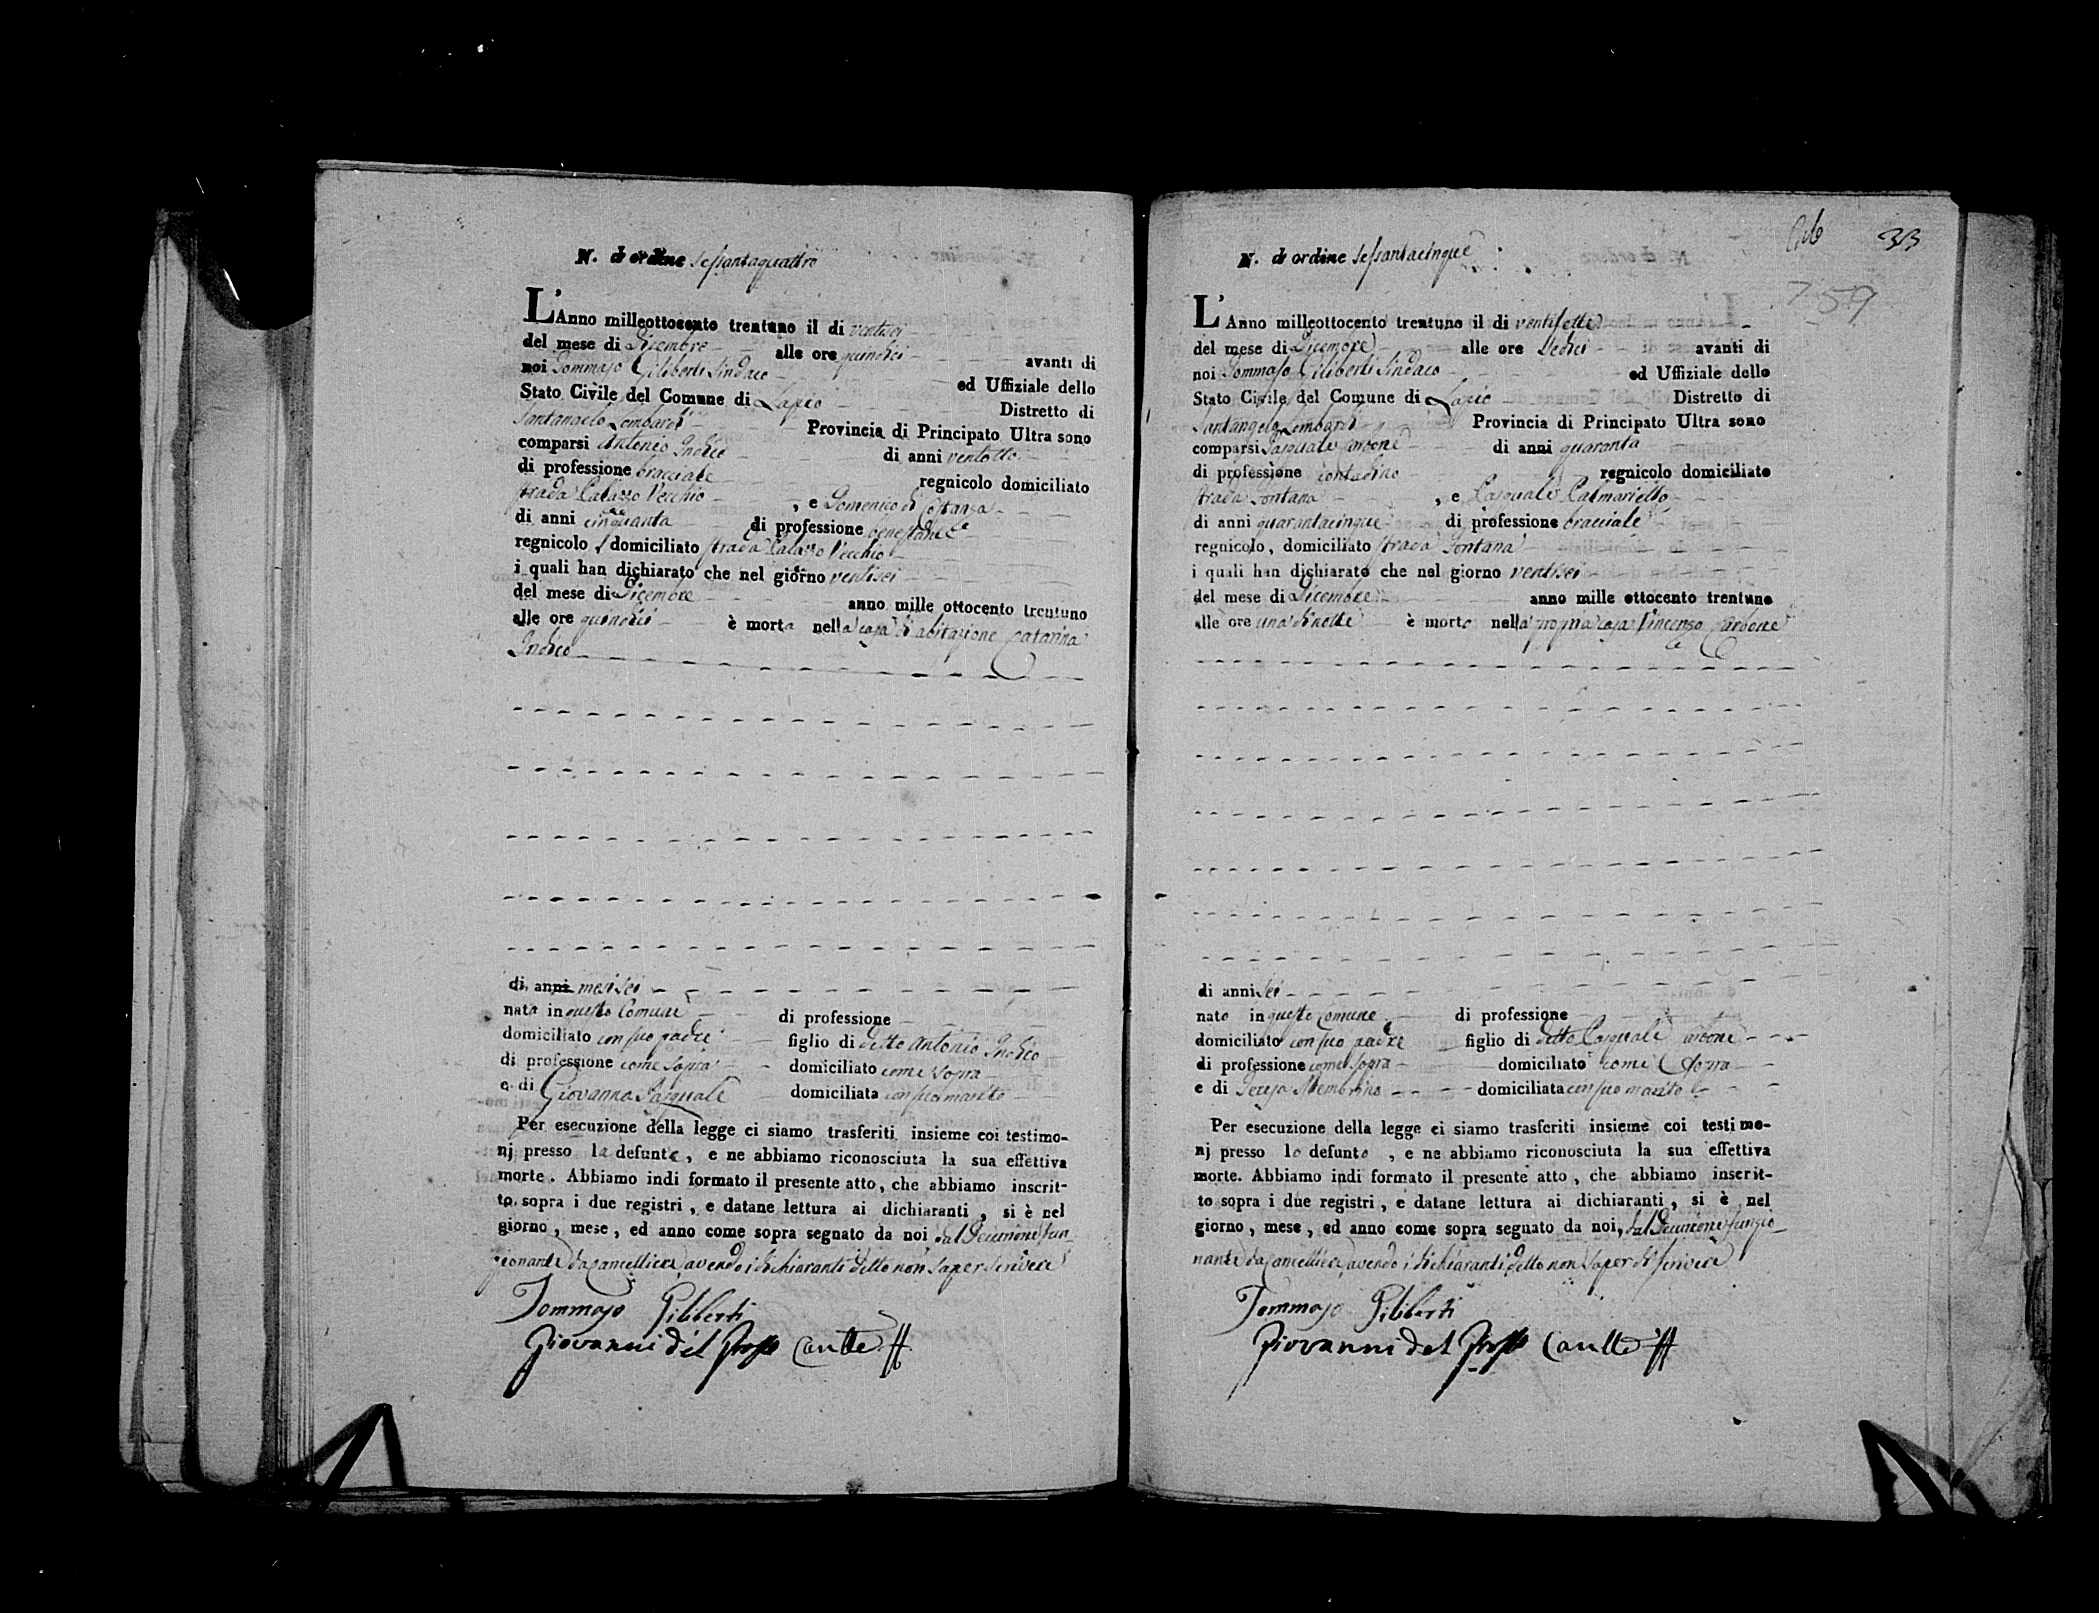 N. di ordine sessantaquattro
L'Anno milleottocento trentuno il di ventisei
del mese di Dicembre alle ore quindici avanti di
noi Tommaso Giliberti Sindaco ed Uffiziale dello
Stato Civile del Comune di Lapio Distretto di
Santangelo Lombardi Provincia di Principato Ultra sono
comparsi Antonio Indico di anni ventotto
di professione bracciale regnicolo domiciliato
strada Palazzo Vecchio, e Domenico di Costanza
di anni cinquanta di professione benestante
regnicolo, domiciliato strada Palazzo Vecchio
i quali han dichiarato che nel giorno ventisei
del mese di Dicembre anno mille ottocento trentuno
alle ore quindici è morta nella casa di abitazione Catarina
Indico
di anni mesi sei
nata in questo Comune di professione
domiciliato con suo padre figlio di detto Antonio Indico
di professione come sopra domiciliato come sopra
e di Giovanna Pasquale domiciliata con suo marito
Per esecuzione della legge ci siamo trasferiti insieme coi testimo-
nj presso la defunta, e ne abbiamo riconosciuta la sua effettiva
morte. Abbiamo indi formato il presente atto, che abbiamo inscrit-
to sopra i due registri, e datane lettura ai dichiaranti, si è nel
giorno, mese, ed anno come sopra segnato da noi, dal Decurione fun-
zionante da Cancelliere, avendo i dichiaranti detto non saper scrivere
Tommaso Giliberti
Giovanni del Canlle
33
759
N. di ordine sessantacinque
L'Anno milleottocento trentuno il di ventisette
del mese di Dicembre alle ore sedici avanti di
noi Tommaso Giliberti Sindaco ed Uffiziale dello
Stato Civile del Comune di Lapio Distretto di
Santangelo Lombardi Provincia di Principato Ultra sono
comparsi Pasquale Carbone di anni quaranta
di professione contadino regnicolo domiciliato
strada Fontana, e Pasquale Palmariello
di anni quarantacinque di professione bracciale
regnicolo, domiciliato strada Fontana
i quali han dichiarato che nel giorno ventisei
del mese di Dicembre anno mille ottocento trentuno
alle ore una di notte è morto nella propria casa Vincenzo Carbone
di anni sei
nato in questo Comune di professione
domiciliato con suo padre figlio di detto Pasquale Carbone
di professione come sopra domiciliato come sopra
e di Teresa Membrino domiciliata con suo marito
Per esecuzione della legge ci siamo trasferiti insieme coi testimo-
nj presso lo defunto, e ne abbiamo riconosciuta la sua effettiva
morte. Abbiamo indi formato il presente atto, che abbiamo inscrit-
to sopra i due registri, e datane lettura ai dichiaranti, si è nel
giorno, mese, ed anno come sopra segnato da noi, dal Decurione funzio-
nante da Cancelliere, avendo i dichiaranti detto non saper di scrivere
Tommaso Giliberti
Giovanni del Canlle